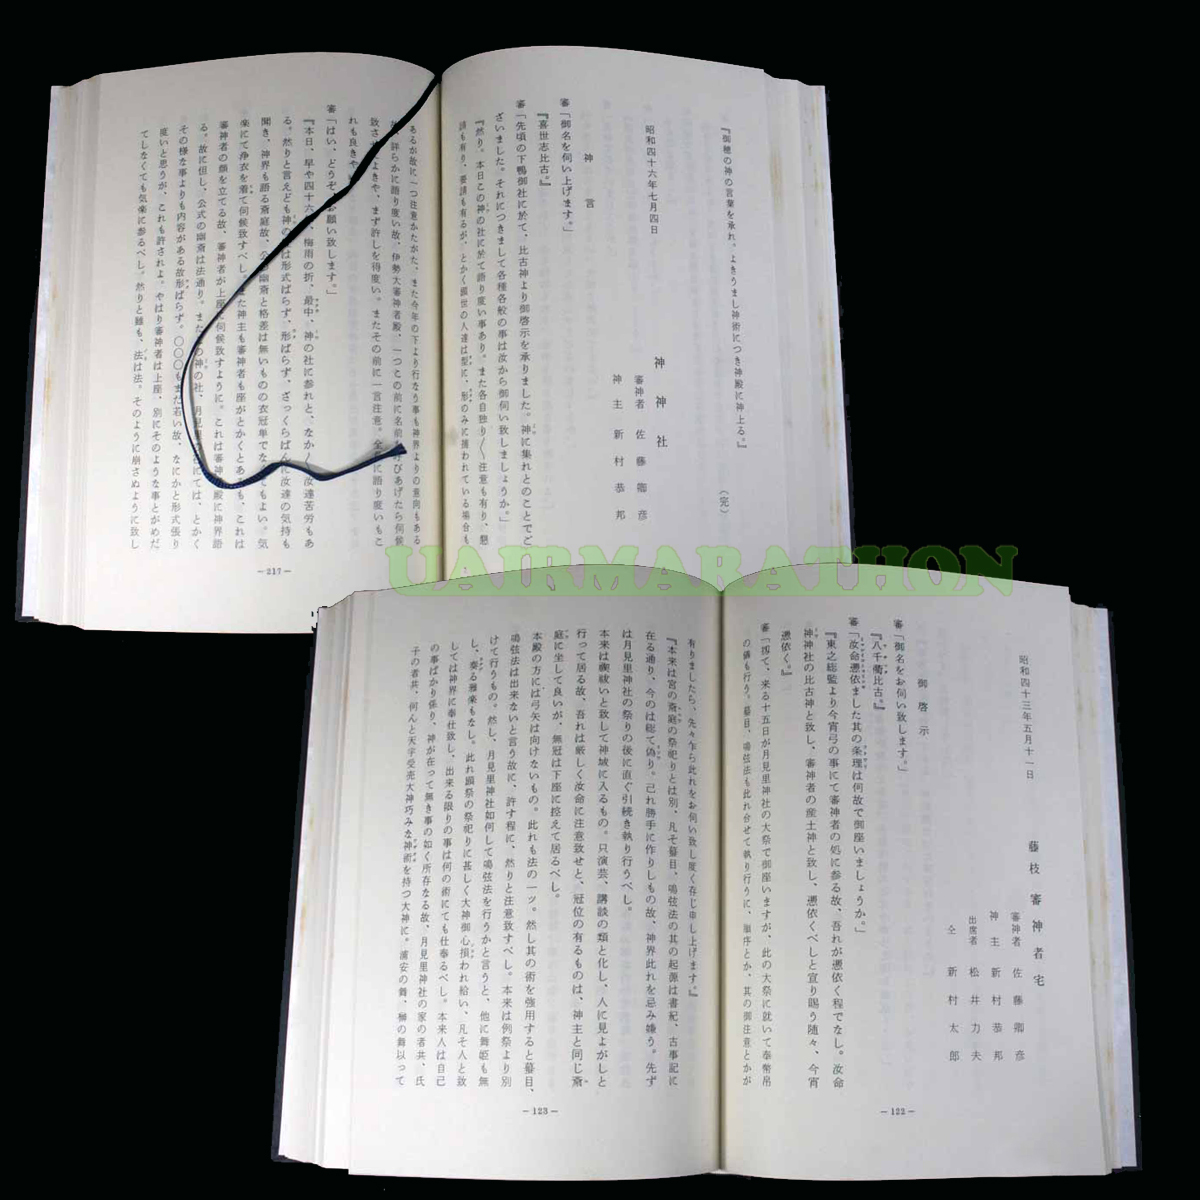 『御穂の神の言葉を承れ、よきうまし神術につき神殿に神上る。』
(完)
神神社
昭和四十六年七月四日
審神者 佐藤卿彦
神主 新村恭邦
神言
審「御名を伺い上げます。」
『喜世志比古。』
審「先頃の下鴨御社に於て、比古神より御啓示を承りました。神に集れとのことでご
ざいました。それにつきまして各種各般の事は汝から御伺い致しましょうか。」
『然り。本日この神の社に於て語り度い事あり。また各自独り〱注意も有り、懇
請も有り、要請も有るが、とかく顕世の人達は型に、形のみに捕われている場合も
あるが故に一つ注意かたがた、また今年の下より行なう事も神界よりの意向もある
故、詳らかに語り度い故、伊勢大審神者殿、一つこの前に名前
呼びあげたら伺候
致さ
よきや、まず許しを得度い。またその前に一言注意。全
に語り度いもこ
れも良きや
審「はい、どうぞ
お願い致します。」
『本日、早や四十六
梅雨の折、最中、神の社に参れと、なかく
汝達苦労もあ
る。然りと言えども神の
は形式ばらず、形ばらず、ざっくらばんに汝達の気持も
聞き、神界も語る斎庭故、公
幽斎と格差は無いものの衣冠単でなくてもよい。気
楽にて浄衣を着て伺候致すべし。また神主も審神者も座がとかくとあ
も、これは
審神者の顔を立てる故、審神者が上座
伺候致すように。これは審神
殿に神界語
る。故に但し、公式の幽斎は法通り。また
の神の社、月見里
にては、とかく
その様な事よりも内容がある故形ばらず。〇〇〇もまだ若い故、なにかと形式張り
度いと思うが、これも許されよ。やはり審神者は上座、別にそのような事とがめだ
てしなくても気楽に参るべし。然りと雖も、法は法。そのように崩さぬように致し
－217－
UAIRMARATHON
昭和四十三年五月十一日
藤枝 審神者宅
審神者 佐藤卿彦
神主 新村恭邦
出席者 松井力夫
仝 新村太郎
御啓示
審「御名をお伺い致します。」
『八千衢比古。』
審「汝命憑依ました其の条理は何故で御座いましょうか。」
『東之総監より今宵弓の事にて審神者の処に参る故、吾れが憑依く程でなし。汝命
神神社の比古神と致し、審神者の産土神と致し、憑依くべしと宣り賜う随々、今宵
憑依く。』
審「扨て、来る十五日が月見里神社の大祭で御座いますが、此の大祭に就いて奉幣帛
の儀も行う。蟇目、鳴弦法も此れ合せて執り行うに、順序とか、其の御注意とかが
－122－
有りましたら、先々乍ら此れをお伺い致し度く存じ申し上げます。』
『本来は宮の斎庭の祭祀りとは別、凡そ蟇目、鳴弦法の其の起源は書紀、古事記に
在る通り、今のは総て偽り。己れ勝手に作りしもの故、神界此れを忌み嫌う。先ず
は月見里神社の祭りの後に直ぐ引続き執り行うべし。
本来は禊祓いと致して神域に入るもの。只演芸、講談の類と化し、人に見よがしと
行って居る故、吾れは厳しく汝命に注意致せと、冠位の有るものは、神主と同じ斎
庭に坐して良いが、無冠は下座に控えて居るべし。
本殿の方には弓矢は向けないもの。此れも法の一ッ。然し其の術を強用すると蟇目、
鳴弦法は出来ないと言う故に、許す程に、然りと注意致すべし。本来は例祭より別
けて行うもの。然し、月見里神社如何して鳴弦法を行うかと言うと、他に舞姫も無
し、奏る雅楽もなし。此れ顕祭の祭祀りに甚しく大神御心損われ給い、凡そ人と致
しては神界に奉仕致し、出来る限りの事は何の術にても仕奉るべし。本来人は自己
の事ばかり係り、神が在って無き事の如く所存なる故、月見里神社の家の者共、氏
子の者共、何んと天宇受売大神巧みな神術を持つ大神に。浦安の舞、榊の舞以って
－123－